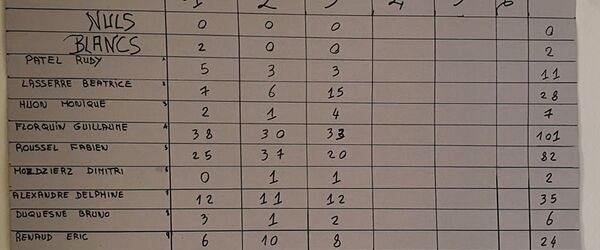 1 2 3 4 5 6
NULS 0 0 0 0
BLANCS 2 0 0 2
PATEL RUDY 5 3 3 11
LASSERRE BEATRICE 7 6 15 28
HUON MONIQUE 2 1 4 7
FLORQUIN GUILLAUME 38 30 33 101
ROUSSEL FABIEN 25 37 20 82
MOZDZIERZ DIMITRI 0 1 1 2
ALEXANDRE DELPHINE 12 11 12 35
DUQUESNE BRUNO 3 1 2 6
RENAUD ERIC 6 10 8 24